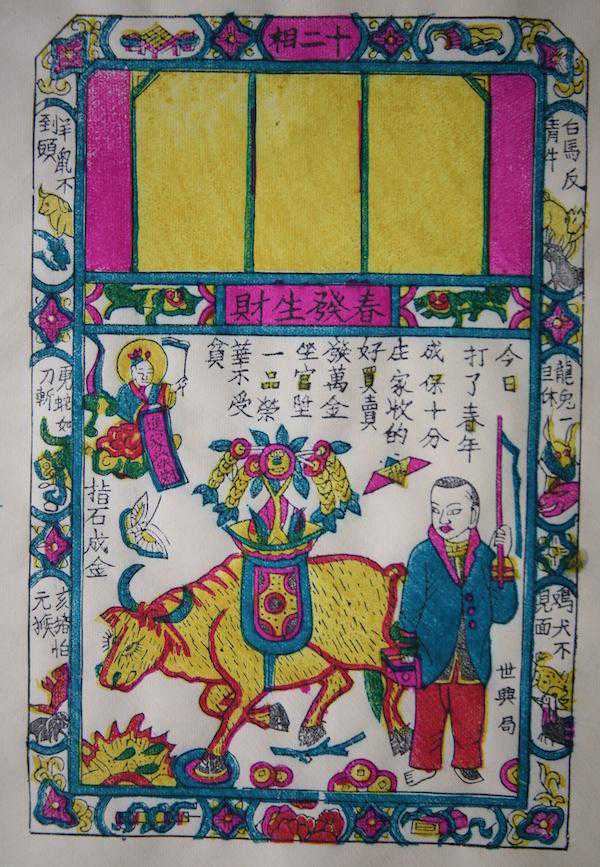 十二相
白馬反
青牛
羊鼠不
到頭
春發生財
今日
打了春年
成保十分
庄家收的
好買賣
發萬金
坐官陞
一品榮
華不受
貧
龍兔一
旦休
蛇如
刀斬
指石成金
犬不
見面
亥猪怕
元猴
世興局